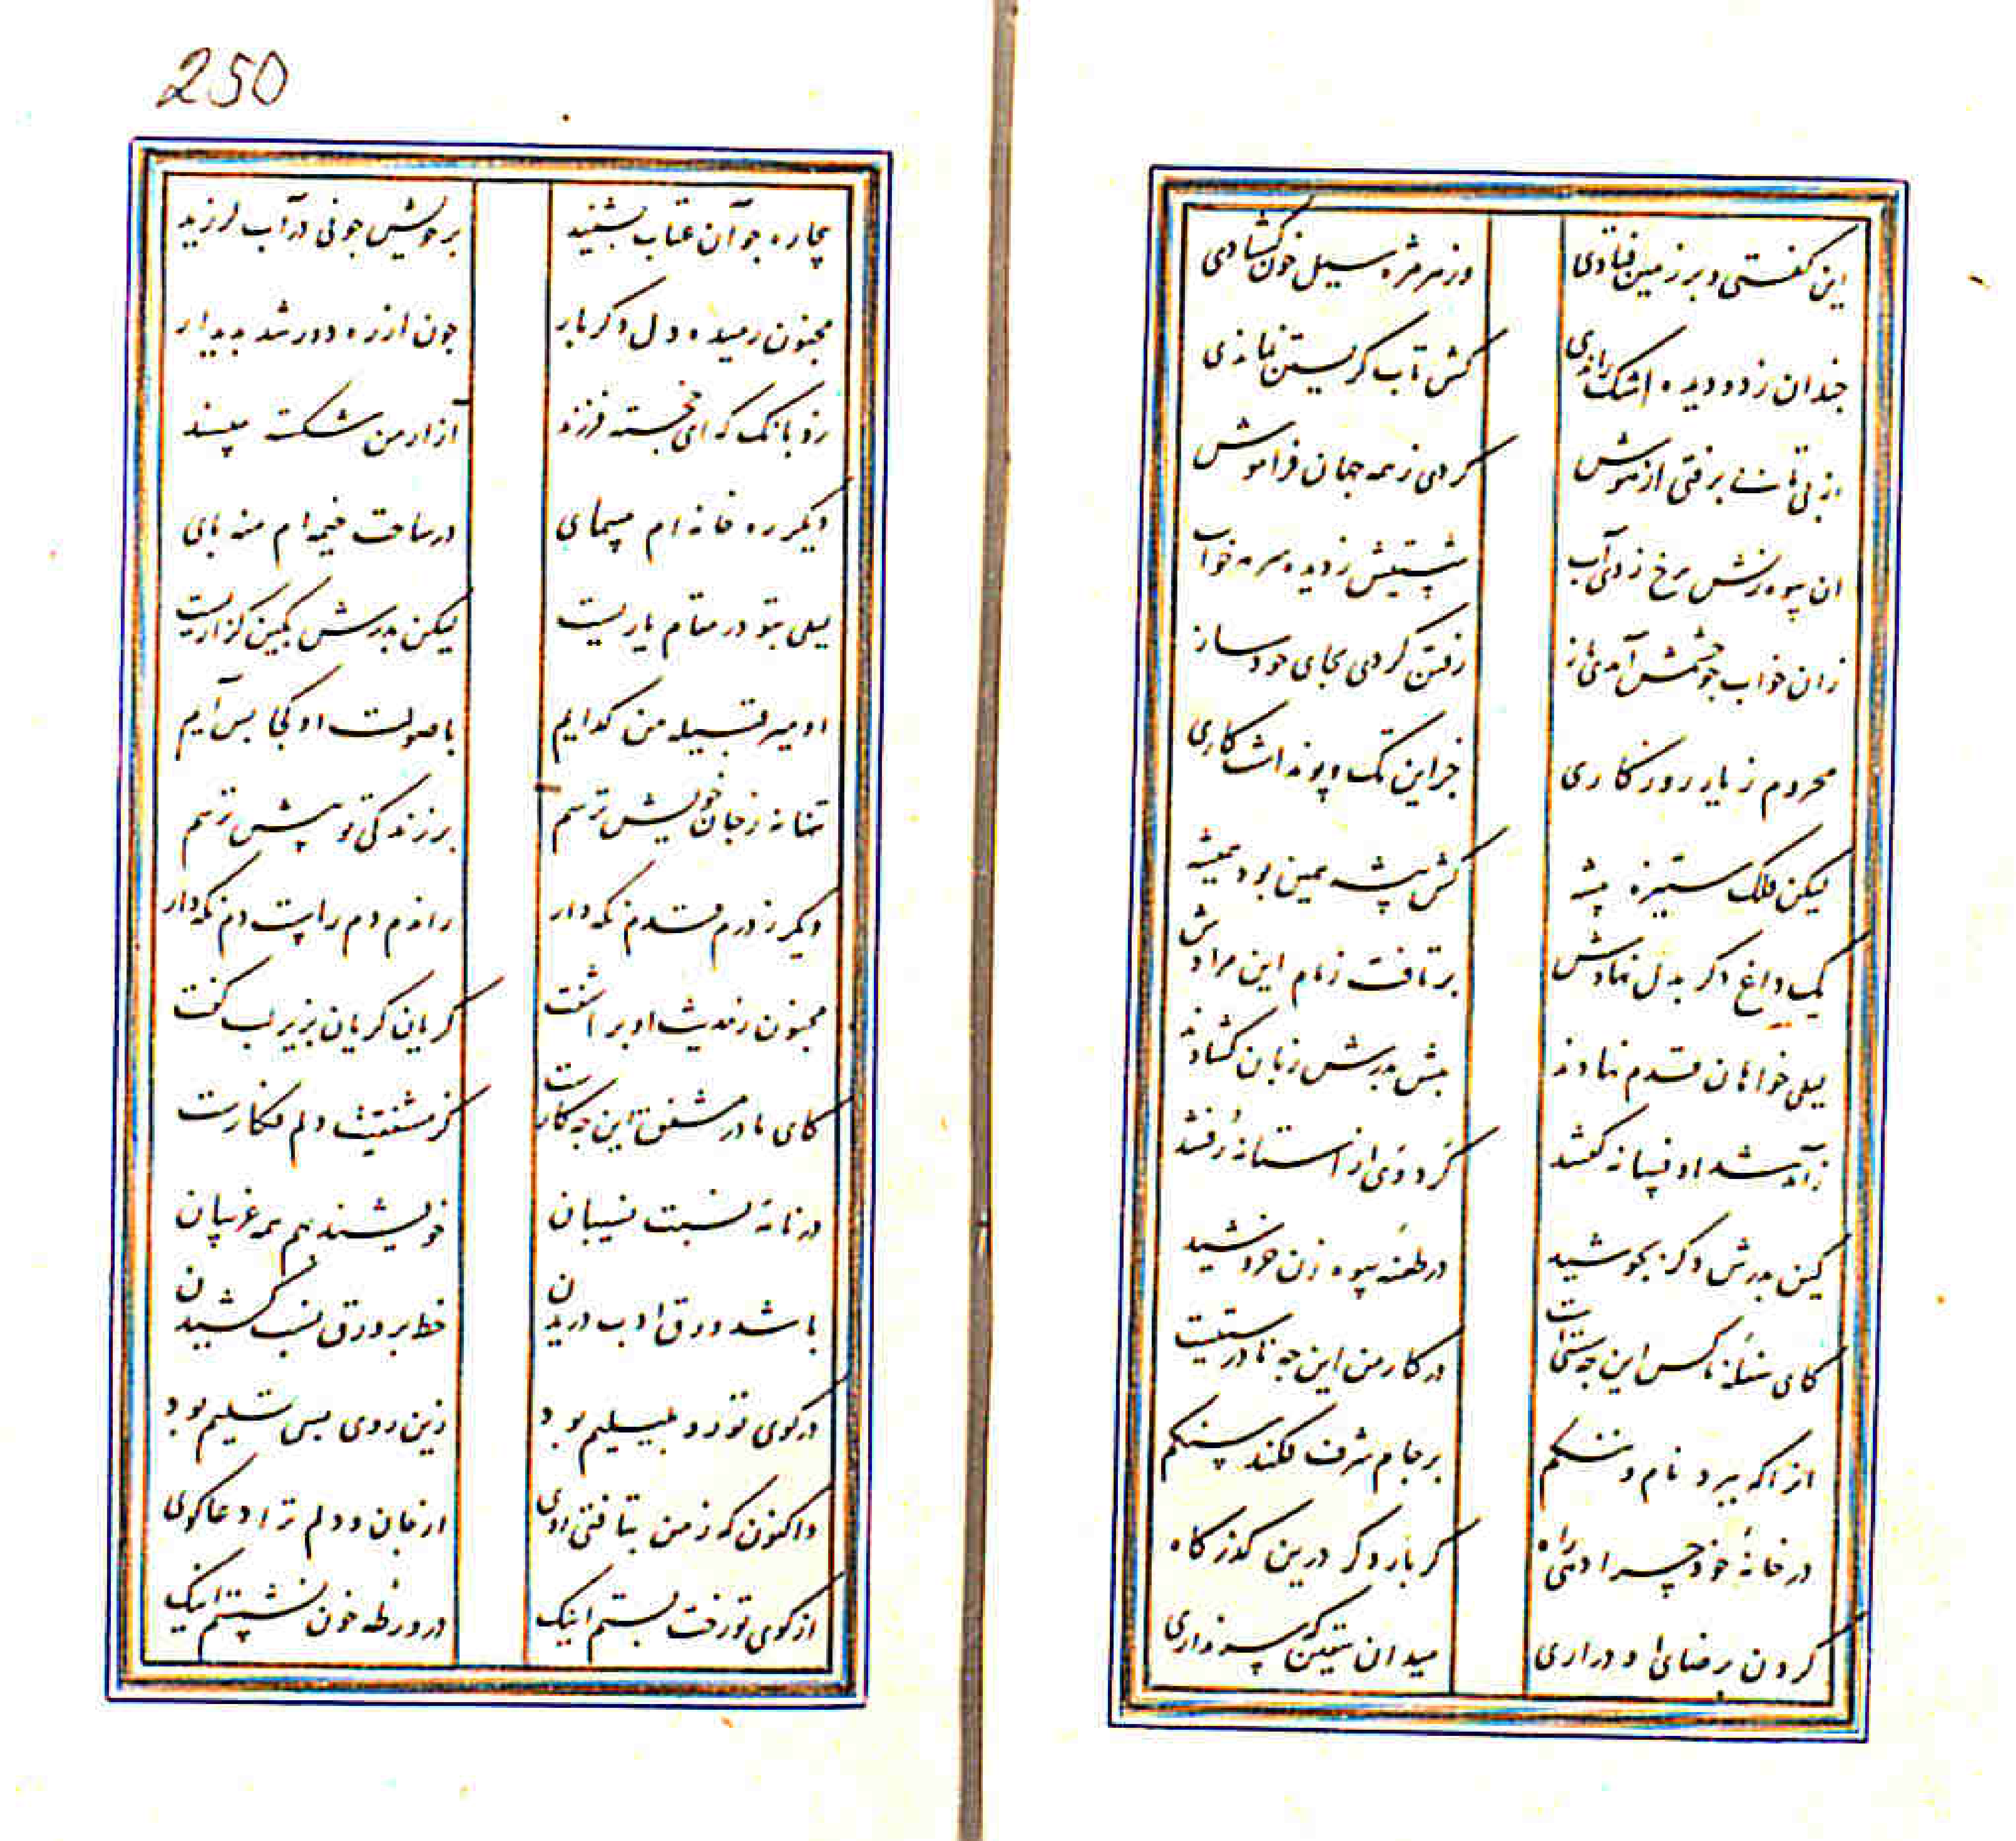 این کفتی و بر زمین فتادی وز هر مژه سیل خون کشادی
جندان ز دو دیده اشک راندی کش تاب کریستن نماندی
از بی تابی برفتی از هوش کردی ز همه جهان فراموش
ان بیوه زنش برخ زدی آب شستیش ز دیده سرمه خواب
زان خواب جو خوشش آمدی باز رفتن کردی بجای خود ساز
محروم ز یار روزکاری جز این تک و پو نداشت کاری
لیکن فلک ستیزه پیشه کش پیشه همین بود همیشه
یک داغ دکر بدل نهادش برتافت زمام این مرادش
لیلی خواهان قدم نهادند پیش پدرش زبان کشادند
ز آمد شد او فسانه کفتند کرد وی از استانه رفتند
کین پدرش دکر بجوشید در طعنه بیوه زن خروشید
کای سفله ناکس این جه سستی است در کار من این جه نادرستیست
از اکه ببرد نام و ننکم بر جام شرف فکند سنکم
در خانهٔ خود جرا دهی راه کر بار دکر درین کذرکاه
کردن برضای او دراری میدان بیقین که سر نداری
250
بیچاره جو آن عتاب بشنید بر خویش جو نی در آب لرزید
مجنون رمیده دل دکر بار جون از ره دور شد بدیدار
زد بانک که ای خجسته فرزند آزار من شکسته مپسند
دیکر ره خانه ام مپیمای در ساحت خیمه ام منه پای
لیلی بتو در مقام یاریست لیکن پدرش بکین کزاریست
او میر قبیله من کدایم با صولت او کجا بس آیم
تنها نه ز جان خویش ترسم بر زندکی تو بیش ترسم
دیکر ز درم قدم نکه دار راندم دم راست دم نکه دار
مجنون ز حدیث او بر اشفت کریان کریان بزیر لب کفت
کای مادر مشفق این جه کارست کز مشفقیت دلم فکارست
در نامهٔ نسبت نسیبان خویشند بهم همه غریبان
باشد ورق ادب دریدن خط بر ورق نسب کشیدن
در کوی تو زد و لیلیم بود زین روی بسی تسلیم بود
واکنون که ز من بتافتی روی از جان و دلم ترا دعا کوی
از کوی تو رخت بستم اینک در ورطه خون نشستم اینک